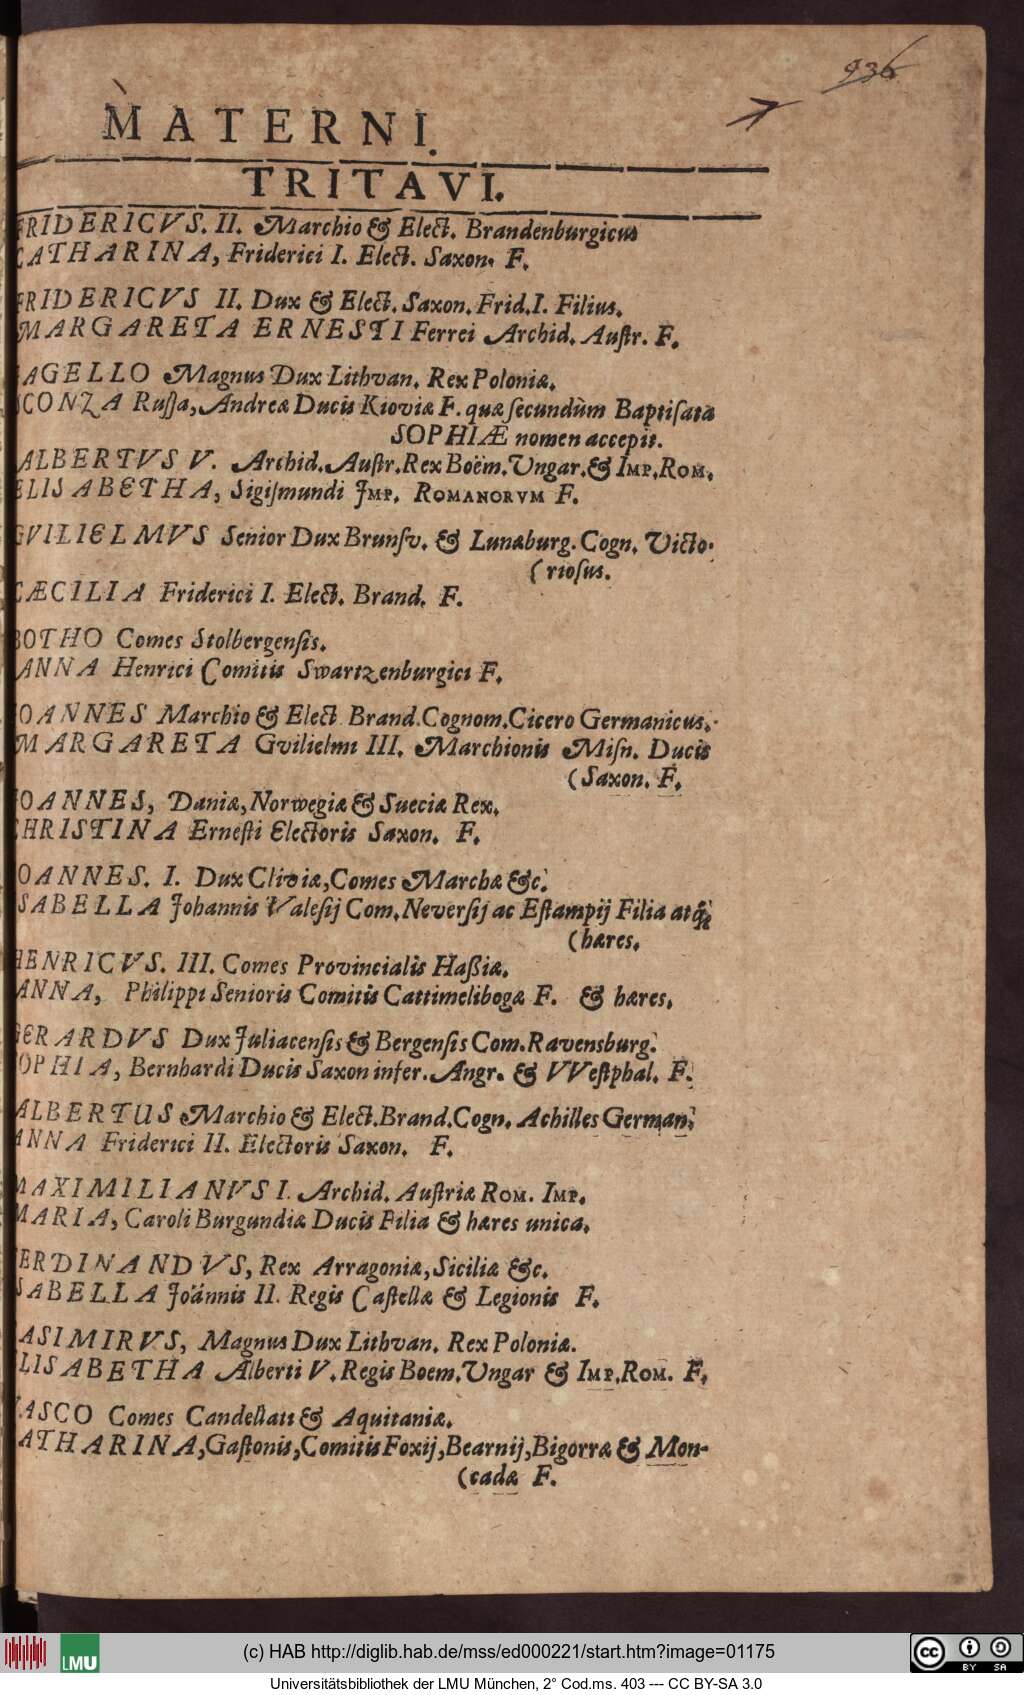 936
MATERNI.
TRITAVI.
FRIDERICVS. II. Marchio & Elect. Brandenburgicus
CATHARINA, Friderici I. Elect. Saxon. F.
FRIDERICVS II. Dux & Elect. Saxon. Frid. I. Filius.
MARGARETA ERNESTI Ferrei Archid. Austr. F.
IAGELLO Magnus Dux Lithvan. Rex Poloniæ.
SCONZA Russa, Andreæ Ducis Kioviæ F. quæ secundùm Baptisata
SOPHIÆ nomen accepit.
ALBERTVS V. Archid. Austr. Rex Boëm. Vngar. & IMP. ROM.
ELISABETHA, Sigismundi IMP. ROMANORVM F.
GVILIELMVS Senior Dux Brunsv. & Lunæburg. Cogn. Victo-
(riosus.
CÆCILIA Friderici I. Elect. Brand. F.
BOTHO Comes Stolbergensis.
ANNA Henrici Comitis Swartzenburgici F.
IOANNES Marchio & Elect. Brand. Cognom. Cicero Germanicus.
MARGARETA Gvilielmi III. Marchionis Misn. Ducis
(Saxon. F.
IOANNES, Daniæ, Norwegiæ & Sueciæ Rex.
CHRISTINA Ernesti Electoris Saxon. F.
IOANNES. I. Dux Cliviæ, Comes Marchæ &c.
ISABELLA Johannis Valesij Com. Neversij ac Estampij Filia atq́;
(hæres.
HENRICVS. III. Comes Provincialis Haßiæ.
ANNA, Philippi Senioris Comitis Cattimelibogæ F. & hæres.
GERARDVS Dux Juliacensis & Bergensis Com. Ravensburg.
SOPHIA, Bernhardi Ducis Saxon infer. Angr. & VVestphal. F.
ALBERTUS Marchio & Elect. Brand. Cogn. Achilles German.
ANNA Friderici II. Electoris Saxon. F.
MAXIMILIANVS I. Archid. Austriæ ROM. IMP.
MARIA, Caroli Burgundiæ Ducis Filia & hæres unica.
FERDINANDVS, Rex Arragoniæ, Siciliæ &c.
ISABELLA Joännis II. Regis Castellæ & Legionis F.
CASIMIRVS, Magnus Dux Lithvan. Rex Poloniæ.
ELISABETHA Alberti V. Regis Boem. Vngar & IMP. ROM. F.
VASCO Comes Candellati & Aquitaniæ.
CATHARINA, Gastonis, Comitis Foxij, Bearnij, Bigorræ & Mon-
(cadæ F.
LMU
(c) HAB http://diglib.hab.de/mss/ed000221/start.htm?image=01175
cc BY SA
Universitätsbibliothek der LMU München, 2° Cod.ms. 403 --- CC BY-SA 3.0